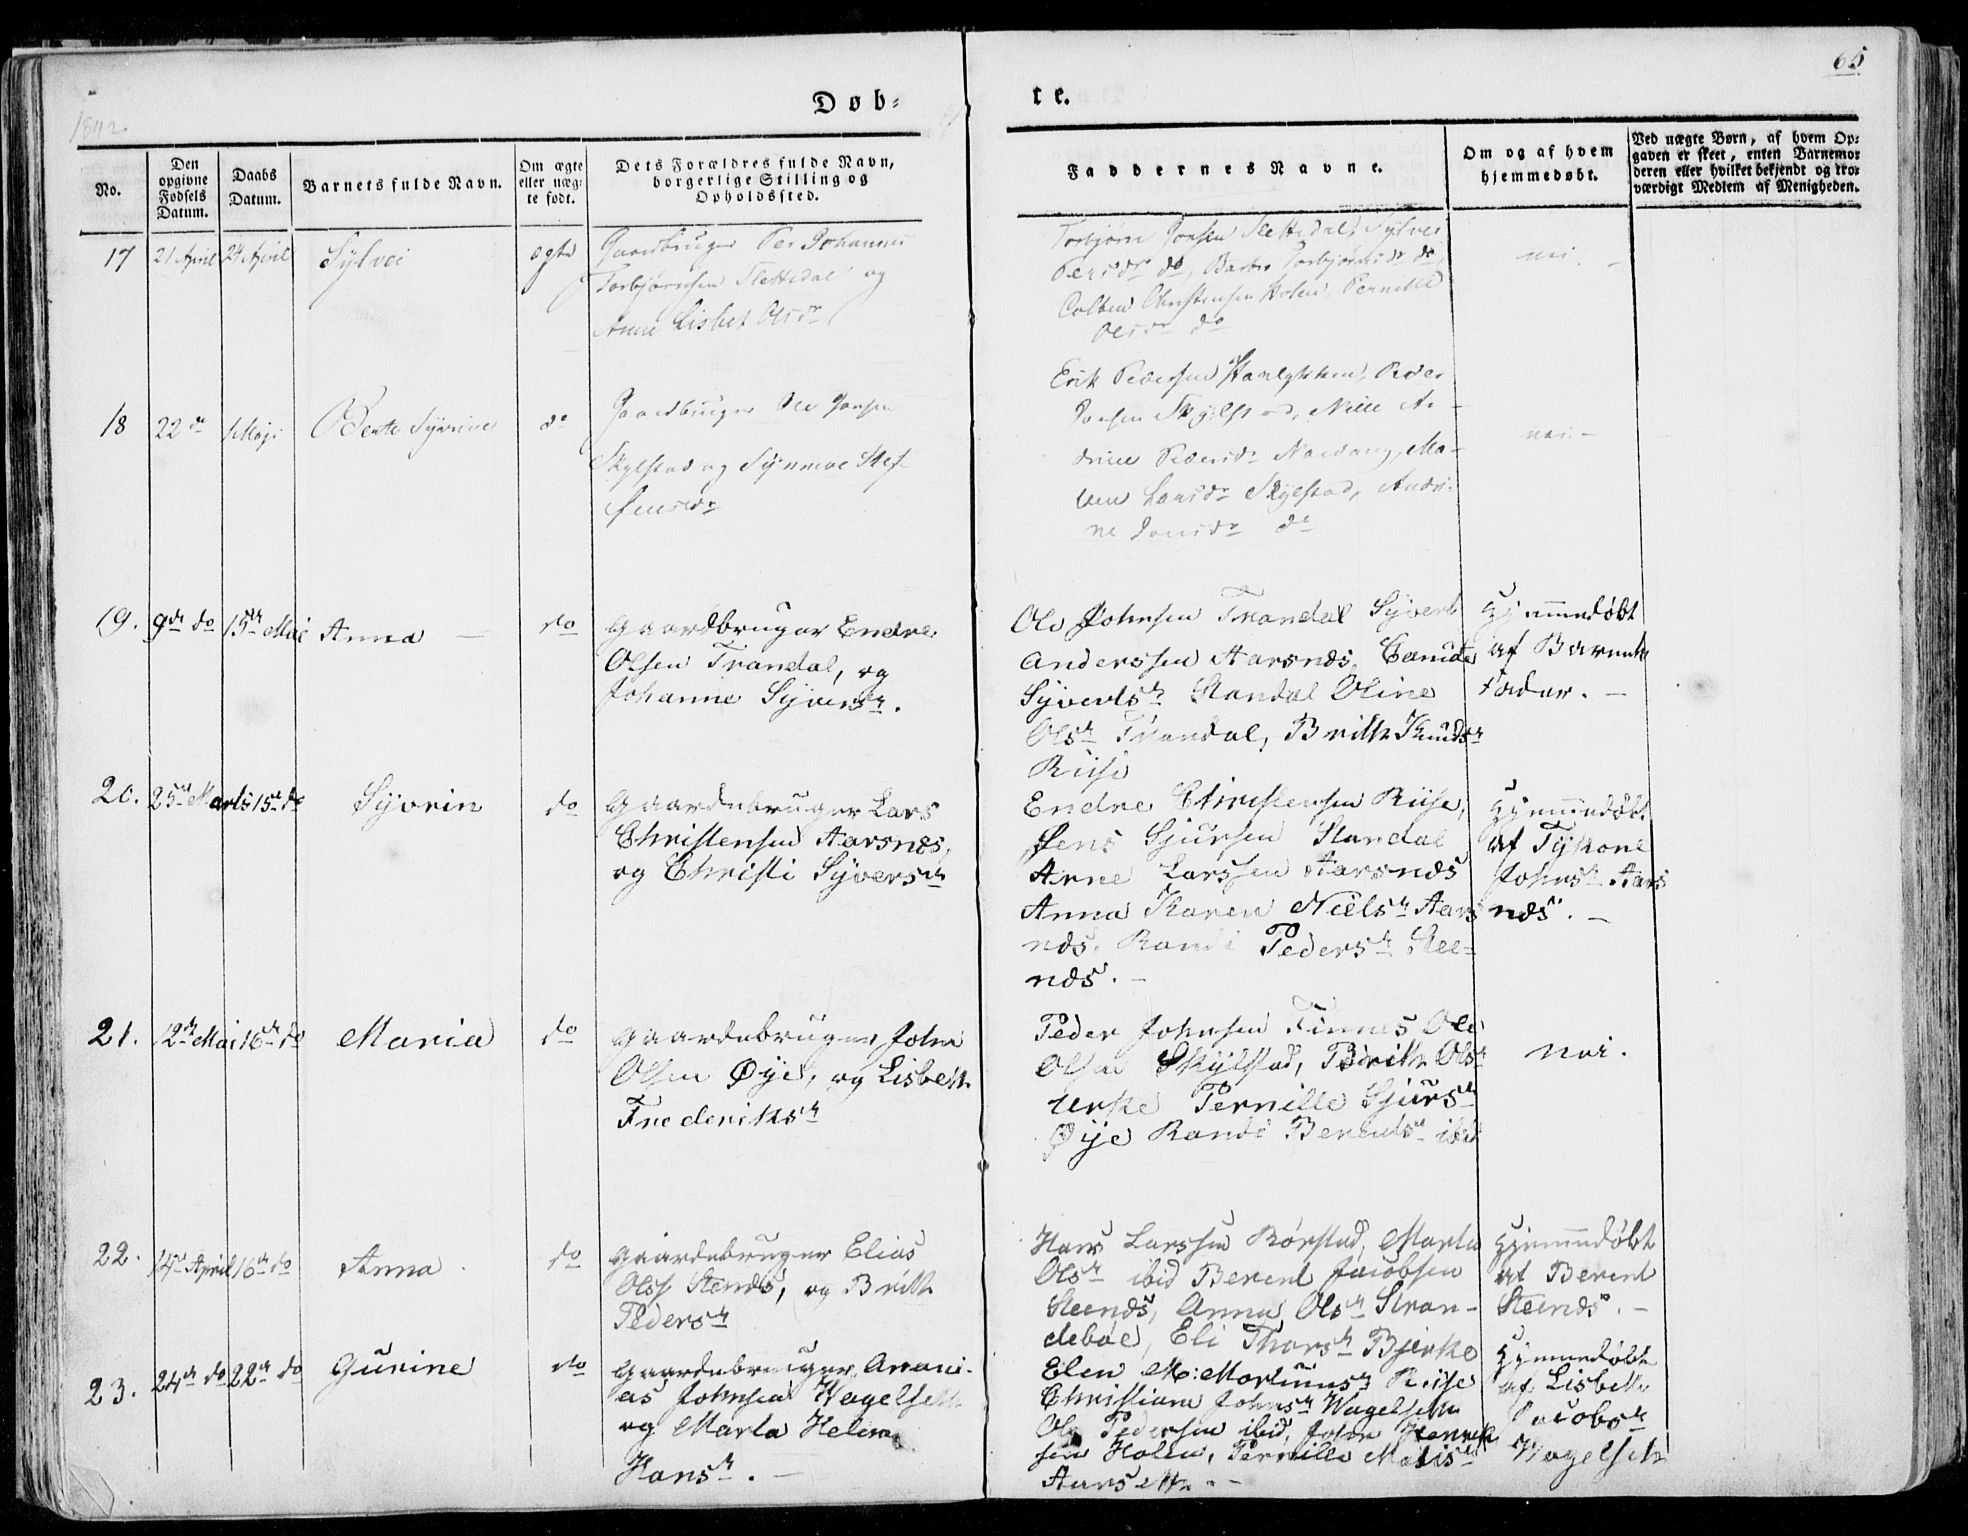 65
Døb=
te.
1842.
No.
Den opgivne Fødsels Datum.
Daabs Datum.
Barnets fulde Navn.
Om ægte eller uæg- te født.
Dets Forældres fulde Navn, borgerlige Stilling og Opholdssted.
Faddernes Navne.
Om og af hvem hjemmedøbt.
Ved uægte Børn, af hvem Op- gaven er skeet, enten Barnemo- deren eller hvilket bekjendt og tro- værdigt Medlem af Menigheden.
17 21 April 24 April Sylvei ægte
Gaardbruger Per Johannes
Torbjørnsen Slettedal og
Anne Lisbet Olsdr
Torbjørn Jonsen Slettedal, Sylvei
Persdr do, Barbro Torbjørnsdr do,
Colben Christensen Holen, Pernille
Olsdr do
nei. -
18 22 do 1 Maji Bente Syvrine do
Gaardbruger Ole Jonsen
Skylstad og Synneve Stef-
fensdr
Erik Pedersen, Peder
Jonsen Skylstad, Nille An-
drine Pedersdr Nordang, Ma-
ren Larsdr Skylstad, Andri-
ne Jonsdr do
nei. -
19. 9de do 15de Mai Anna do
Gaardbruger Endre
Olsen Trandal, og
Johanne Syversdr.
Ole Johnsen Trandal Syvert
Anderssen Aarsnæs,
Syvertsdr Standal Oline
Olsdr Trandal, Brith Knudsdr
Riise
Hjemmedøbt
af Barnets
Fader. -
20. 25de Marts 15de do Syvrin do
Gaardebruger Lars
Christensen Aarsnæs,
og Christi Syversdr
Endre Christensen Riise,
Jens Sjursen Standal
Arne Larssen Aarsnæs
Anna Karen Nielsdr Aars
næs, Randi Pedersdr Stee-
næs. -
Hjemmedøbt
af Tykone
Johnsdr Aars
næs. -
21. 12de Mai 16de do Maria do
Gaardebruger John
Olsen Øye, og Lisbeth
Frederiksdr
Peder Johnsen Finnes Ole
Olsen Skylstad, Brith Olsdr
Urke Pernille Sjursdr
Øye Randi Berentsdr ibid
Nei.
22. 14de April 16de do Anna do
Gaardebruger Elias
Olss Stenæs, og Brith
Pedersdr
Hans Larssen Rørstad, Marta
Olsdr ibid Berent Jacobsen
Steenæs, Anna Olsdr Stran-
deboe, Eli Thorsdr Bjerke
Hjemmedøbt
af Berent
Steenæs. -
23. 24de do 22de do Gurine do
Gaardebruger Anani-
as Johnsen Wagelseth
og Marta Helene
Hansdr. -
Elen M: Mortinusdr Riise
Christiane Johnsdr Wagelseth
Ole Pedersen ibid, John Henrik
sen Holen, Pernille Matisdr
Aarseth. -
Hjemmedøbt
af Lisbeth
Jacobsdr
Wagelseth